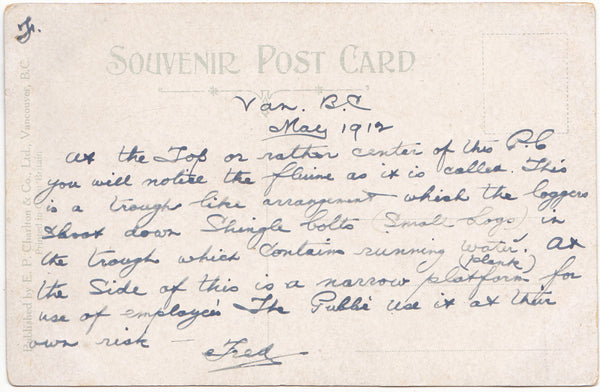 F.
SOUVENIR POST CARD
Van. B.C
May 1912
At the Top or rather center of this P.C
you will notice the flume as it is called. This
is a trough like arrangement which the loggers
shoot down Shingle bolts (Small logs) in
the trough which contains running water. At
the Side of this is a narrow platform (plank) for
use of employees The Public use it at their
own risk —
Fred
Published by E. P. Charlton & Co., Ltd. Vancouver, B.C.
Printed in